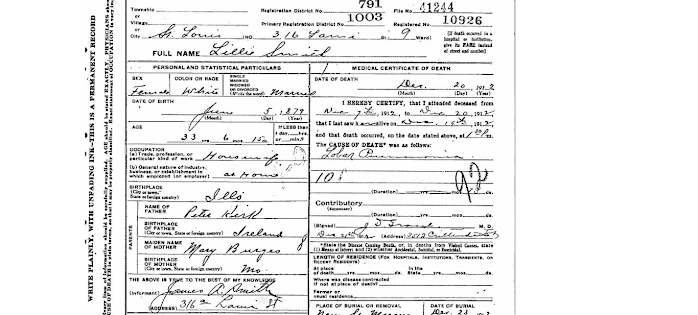 Township
or
Village
or
City St. Louis (NO. 316 Lami St. 9 Ward)
Registration District No. 791
Primary Registration District No. 1003
File No. 41244
Registered No. 10926
[If death occurred in a
hospital or institution,
give its NAME instead
of street and number]
FULL NAME Lillie Smith
PERSONAL AND STATISTICAL PARTICULARS
SEX
Female
COLOR OR RACE
White
SINGLE
MARRIED
WIDOWED
OR DIVORCED
(Write the word) Married
DATE OF BIRTH
June 5, 1879
(Month) (Day) (Year)
AGE
33 yrs. 6 mos. 15 ds.
If LESS than
1 day, hrs.
or min.?
OCCUPATION
(a) Trade, profession, or
particular kind of work Housewife
(b) General nature of industry,
business, or establishment in
which employed (or employer) at Home
BIRTHPLACE
(City or town,
State or foreign country) Ills
PARENTS
NAME OF
FATHER Peter Kirk
BIRTHPLACE
OF FATHER
(City or town, State or foreign country) Ireland
MAIDEN NAME
OF MOTHER Mary Burges
BIRTHPLACE
OF MOTHER
(City or town, State or foreign country) Mo.
THE ABOVE IS TRUE TO THE BEST OF MY KNOWLEDGE
(Informant) James A. Smith
(ADDRESS) 316 Lami St
MEDICAL CERTIFICATE OF DEATH
DATE OF DEATH
Dec. 20, 1912
(Month) (Day) (Year)
I HEREBY CERTIFY, that I attended deceased from
Dec 7th, 1912, to Dec 20, 1912,
that I last saw h alive on Dec 19th, 1912,
and that death occurred, on the date stated above, at m.
The CAUSE OF DEATH* was as follows:
Lobar Pneumonia
108
92
(Duration) yrs. mos. ds.
Contributory
(SECONDARY)
(Duration) yrs. mos. ds.
(Signed) M.D.
(Address)
*State the Disease Causing Death, or, in deaths from Violent Causes, state
(1) Means of Injury; and (2) whether Accidental, Suicidal, or Homicidal.
LENGTH OF RESIDENCE (FOR HOSPITALS, INSTITUTIONS, TRANSIENTS, OR
RECENT RESIDENTS)
At place
of death yrs. mos. ds.
In the
State yrs. mos. ds.
Where was disease contracted
if not at place of death?
Former or
usual residence
PLACE OF BURIAL OR REMOVAL
DATE OF BURIAL
Dec 23, 1912
WRITE PLAINLY, WITH UNFADING INK—THIS IS A PERMANENT RECORD